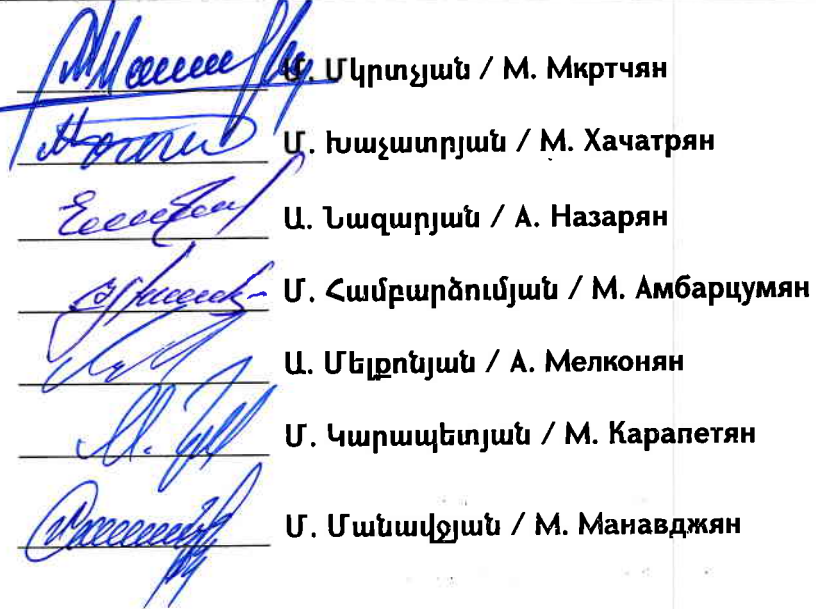 Մ. Մկրտչյան / М. Мкртчян
Մ. Խաչատրյան / М. Хачатрян
Ա. Նազարյան / А. Назарян
Մ. Համբարձումյան / М. Амбарцумян
Ա. Մելքոնյան / А. Мелконян
Մ. Կարապետյան / М. Карапетян
Մ. Մանավջյան / М. Манавджян